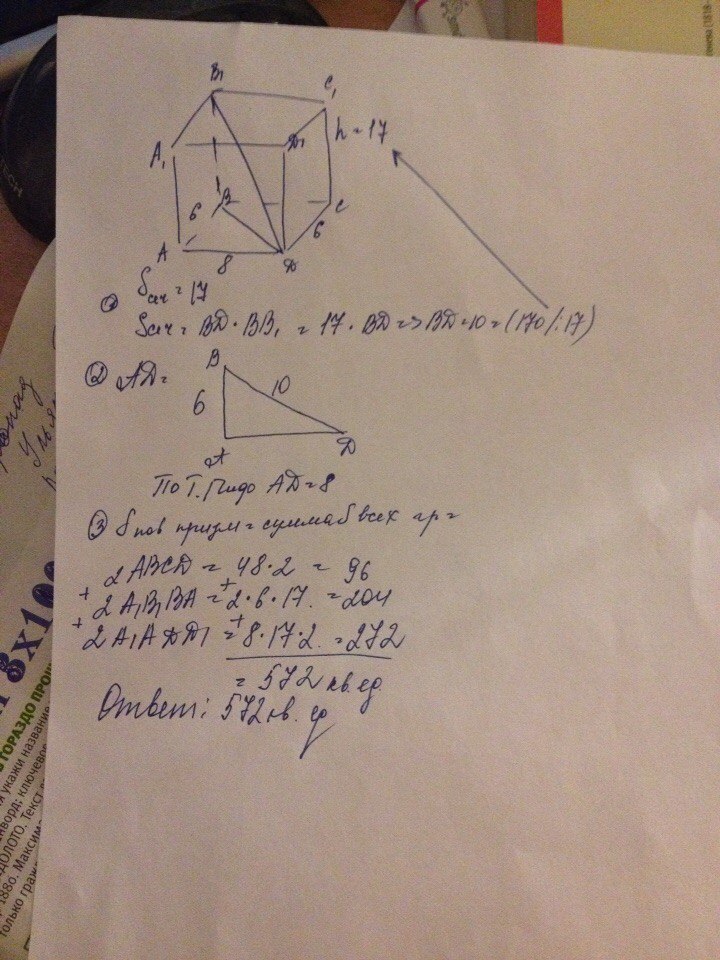 B₁
C₁
A₁
D₁
h = 17
6
B
C
A
8
D
6
① Sсеч = 17
Sсеч = BD · BB₁ = 17 · BD => BD = 10 = (170/:17)
② AD =
B
6
10
A
D
По т. Пифо AD = 8
③ S пов призм = сумма S всех гр =
2 ABCD = 48·2 = 96
+ 2 A₁B₁BA = + 2·6·17 = 204
+ 2 A₁ADD₁ = + 8·17·2 = 272
= 572 кв. ед.
Ответ: 572 кв. ед
TECH
8х10
ГОРАЗДО ПРОЩ
укажи название
ворд; ключевое
ЗОЛОТО. Текст
1880. Максима
только граж